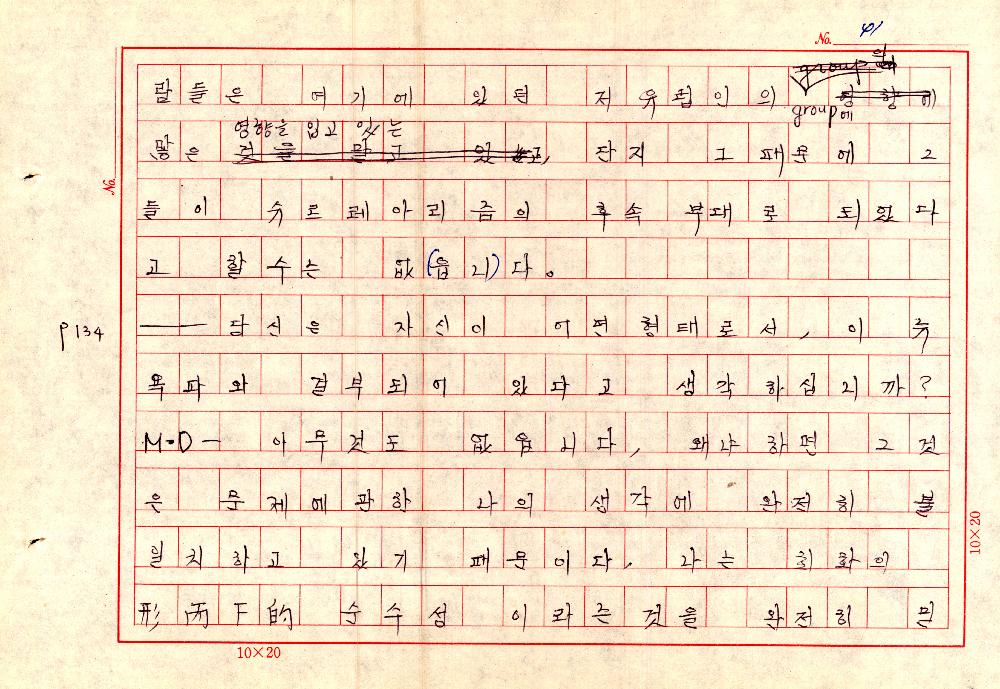 No. 41
group
람들은 여기에 있던 저 유럽인의 영향에
group에
영향을 입고 있는
많은 것을 말고 있고, 단지 그 때문에 그
들이 슈르레아리즘의 후속 부대로 되었다
고 할 수는 없(읍니)다。
p134
—— 당신은 자신이 어떤 형태로서, 이 축
욕파와 결부되어 있다고 생각하십니까?
M·D— 아무것도 없읍니다, 왜냐하면 그것
은 문제에 관한 나의 생각에 완전히 불
일치하고 있기 때문이다. 나는 회화의
形而下的 순수성이라는 것을 완전히 믿
No.
10×20
10×20